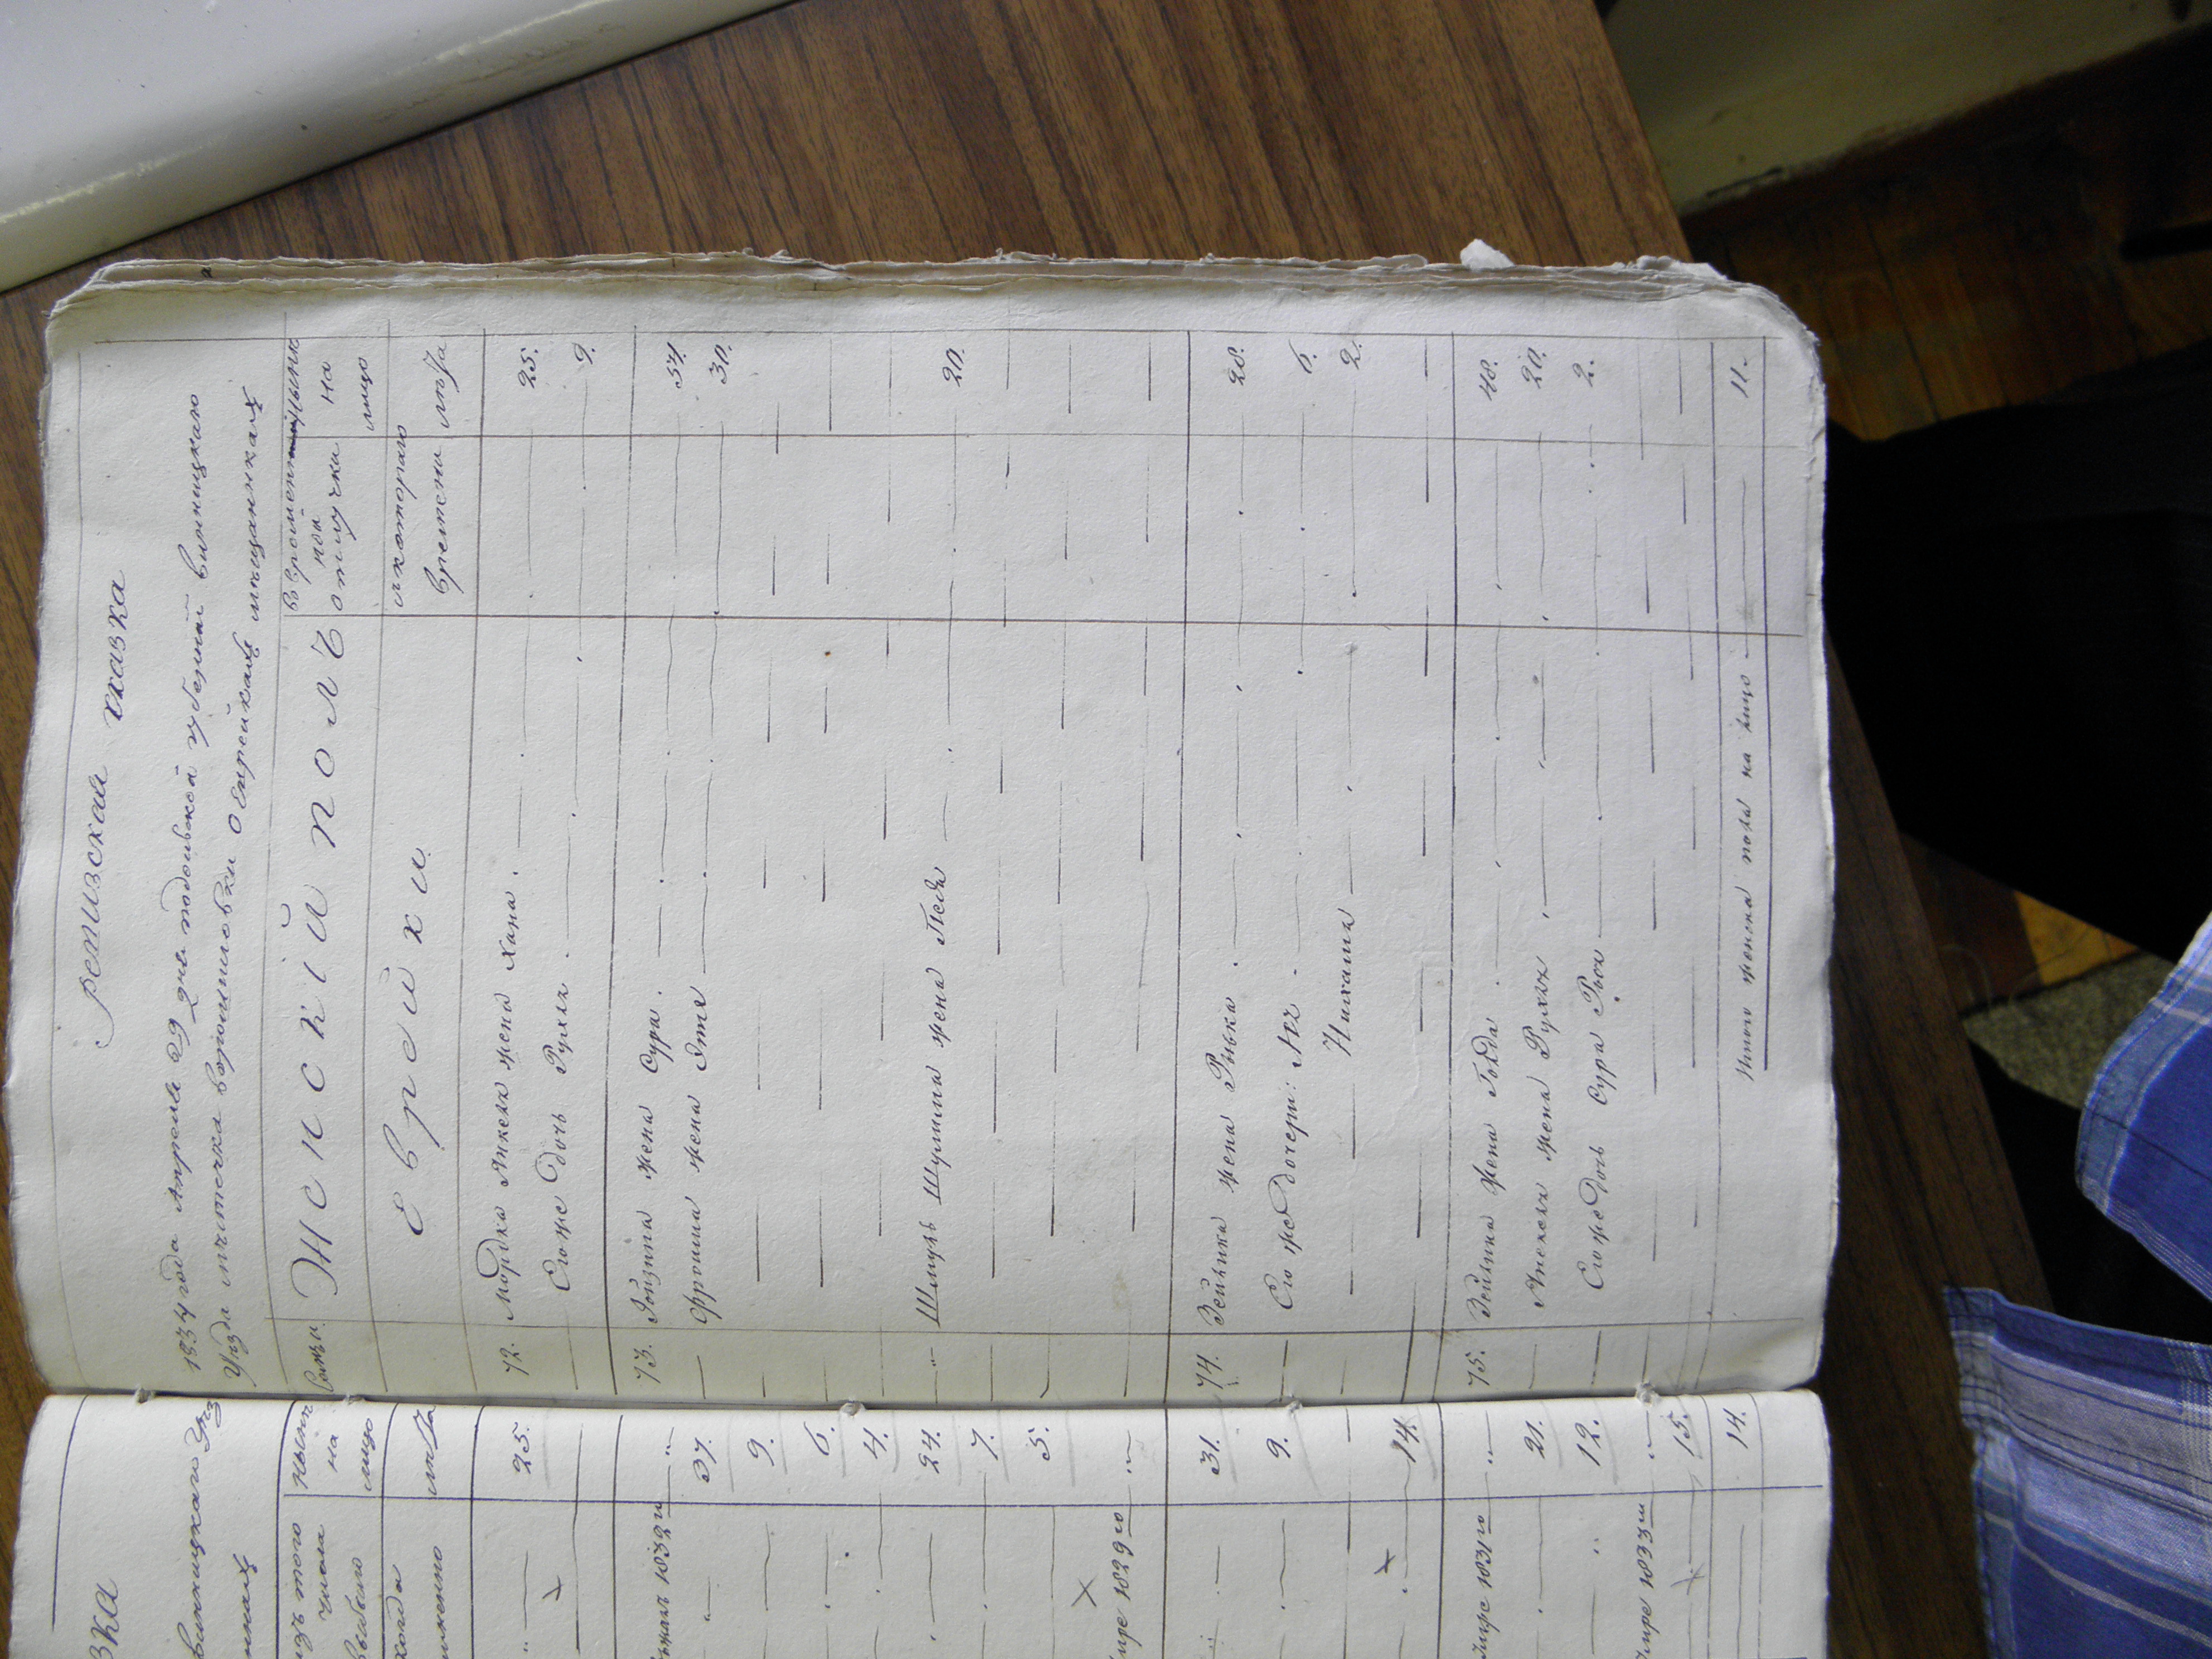 Ревизская сказка
1834 года Апреля 29 дня подольской губернии винницкаго
Уезда местечка ворошиловки о еврейкахъ мещанкахъ
Семьи
Женскій полъ
во временной отлучке
Ныне на лицо
Еврейки
съ котораго времени
лета
72. Мордка Анкеля жена Хана. 25.
Его же дочь Рухля 9.
73. жена Сура 54.
Фроима жена Этя 30.
Шмуль Шулима жена Песя 20.
74. Зейлика жена Рывка 28.
Его же дочери: 6.
Нихама 2.
75. Зейлика жена Голда 48.
жена Рухля 20.
Его же дочь Сура Рыся 2.
Итого женска пола на лицо 11.
зка
винницкаго
изъ того числа выбыло
Ныне на лицо
когда
лета
25.
1832 го "
37.
9.
6.
4.
24.
7.
5.
1829 го "
31.
9.
14.
1831 го "
21.
12.
1833 го "
15.
14.